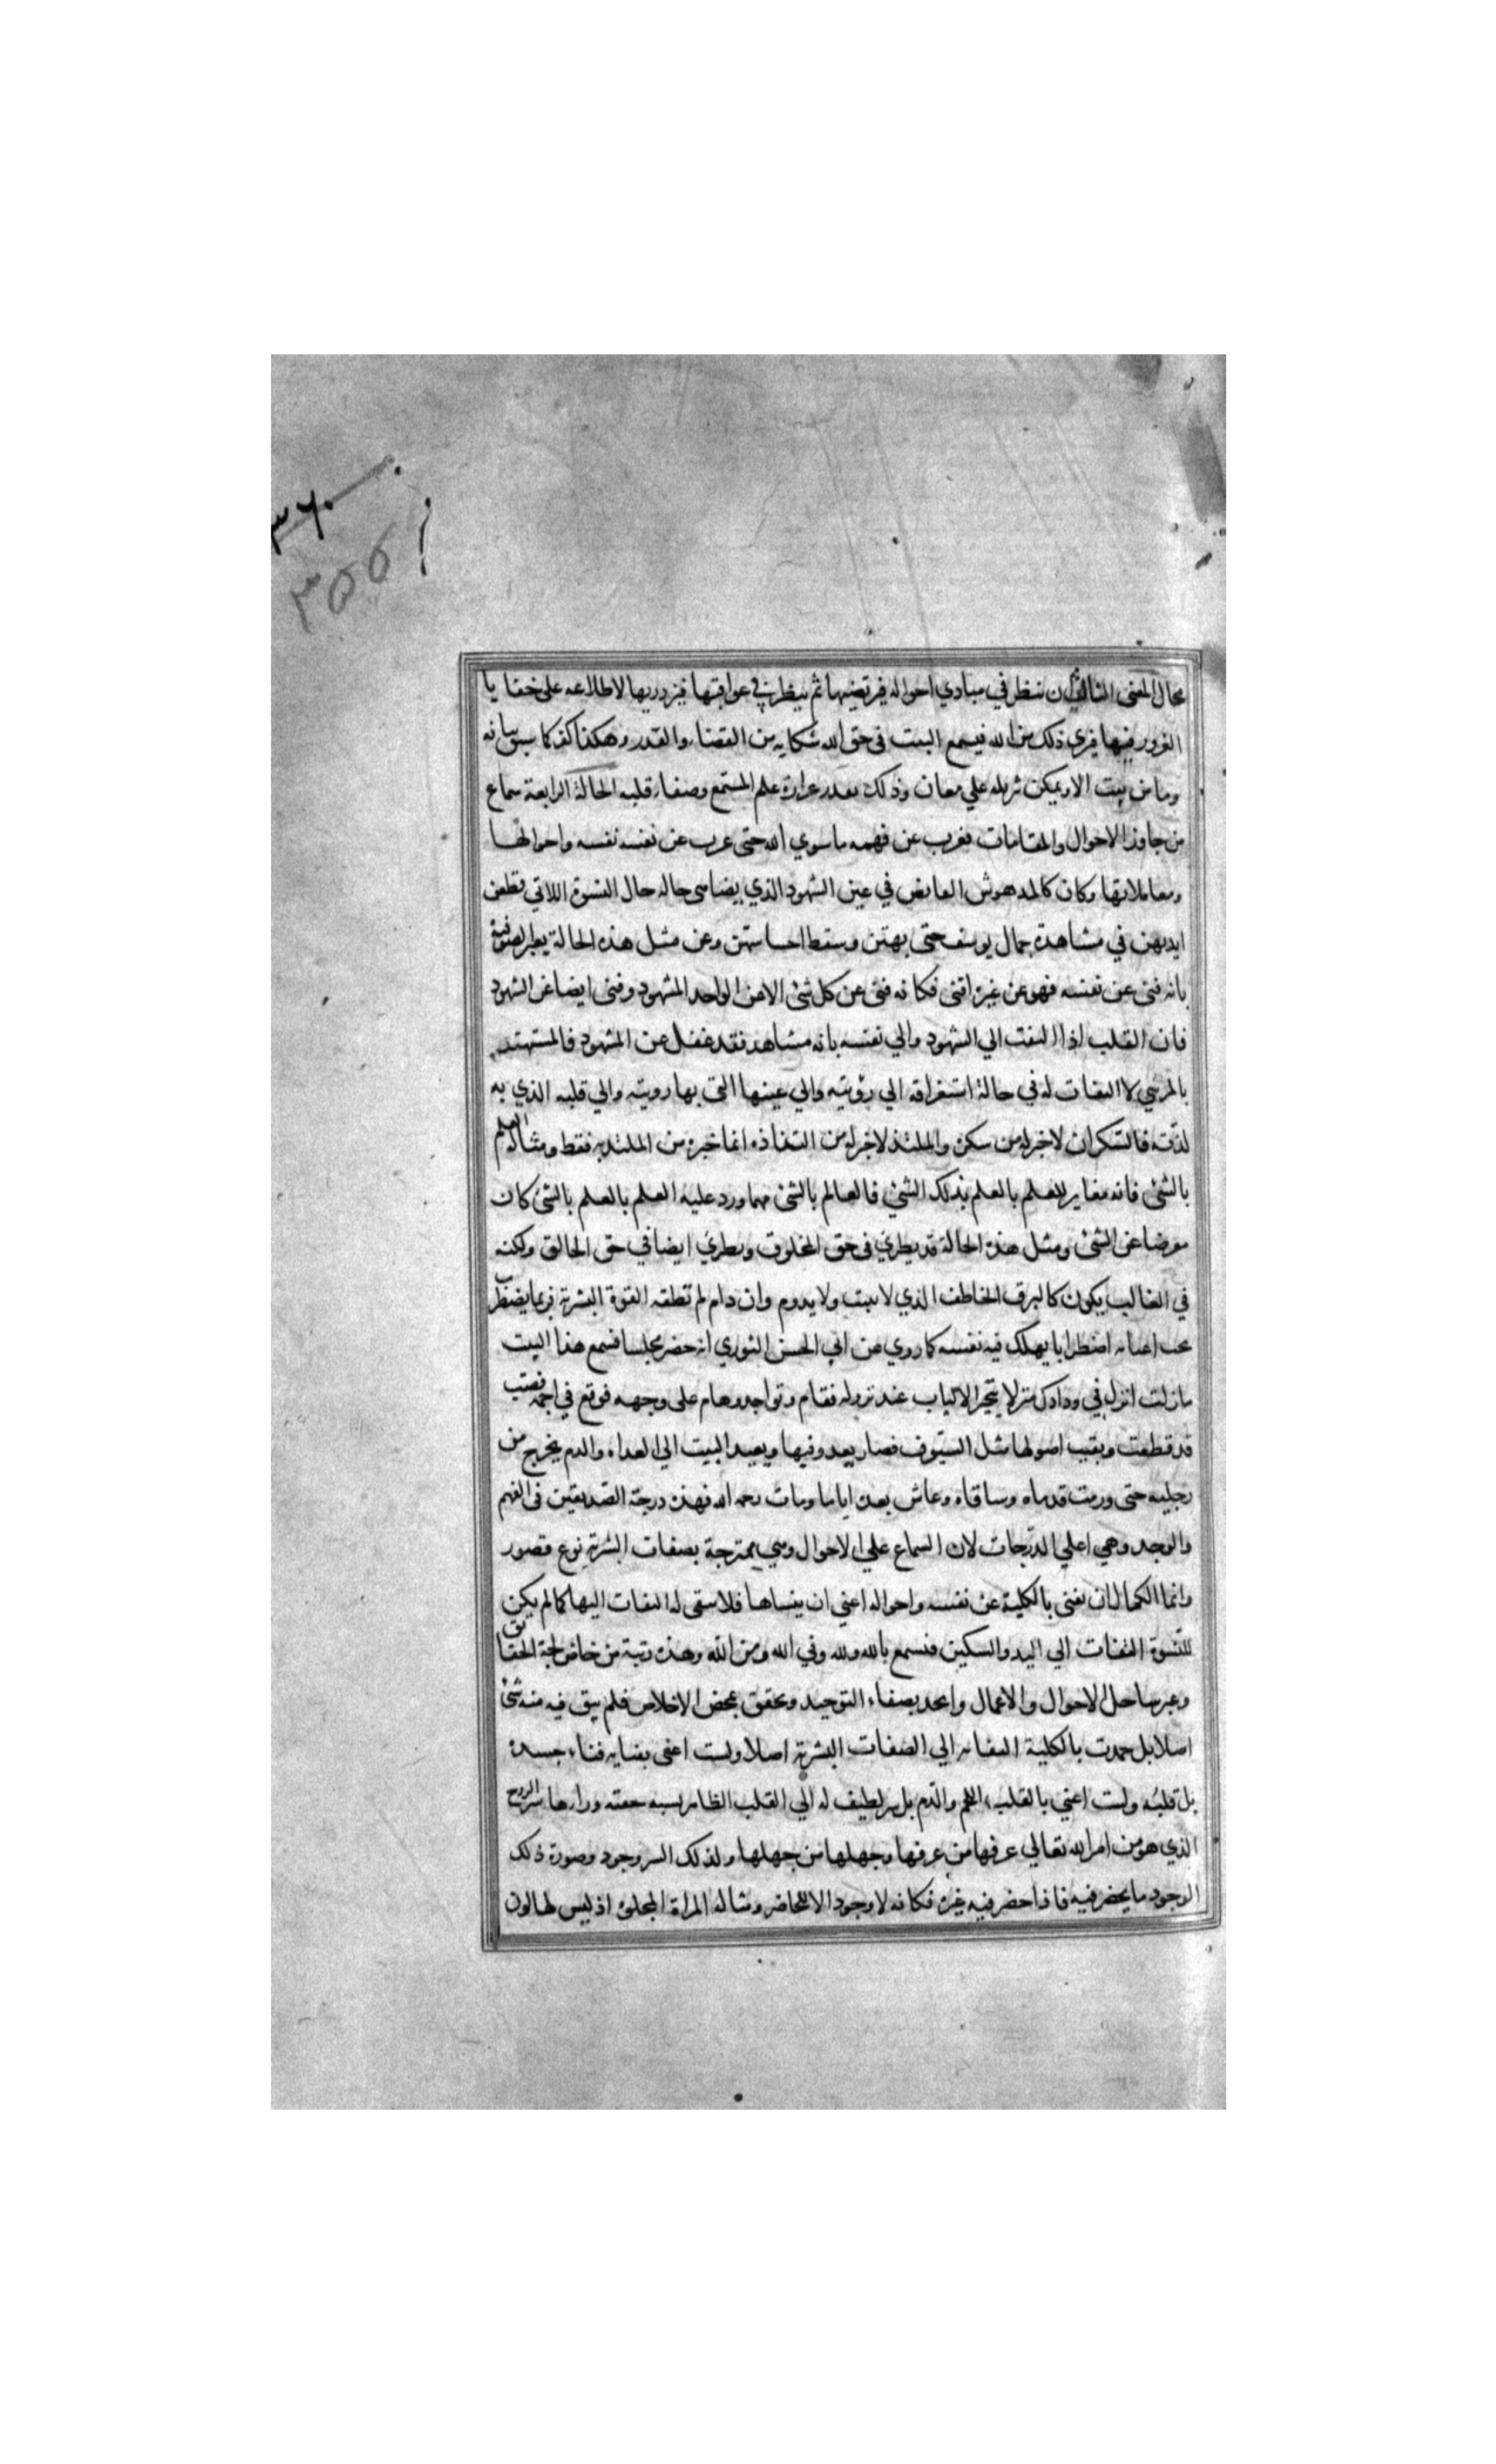 ٣٦٠
٣٥٥
بحال المعنى الثالث ان ينظر في مبادي احواله فيرتضيها ثم ينظر في عواقبها فيزدريها لاطلاعه على خفايا
الغرور فيها فيرى ذلك من الله فيسمع البيت في حق الله شكاية من القضاء والقدر وهكذا كفر كما سبق بيانه
وما من بيت الا ويمكن تنزيله علي معان وذلك بقدر غزارة علم المستمع وصفاء قلبه الحالة الرابعة سماع
من جاوز الاحوال والمقامات فعزب عن فهمه ما سوي الله حتى عزب عن نفسه نفسه واحوالها
ومعاملاتها وكان كالمدهوش الغايض في عين الشهود الذي يضاهي حاله حال النسوة اللاتي قطعن
ايديهن في مشاهدة جمال يوسف حتى بهتن وسقط احساسهن وعن مثل هذه الحالة يعبر الصوفية
بانه فنى عن نفسه فهو عن غيره افنى فكانه فنى عن كل شئ الا عن الواحد المشهود وفنى ايضا عن الشهود
فان القلب اذا التفت الي الشهود والي نفسه بانه مشاهد فقد غفل عن المشهود فالمستهتر
بالمرئي لا التفات له في حالة استغراقه الي رؤيته والي عينها التى بها رويته والي قلبه الذي به
لذته فالسكران لا خبر له من سكره والملتذ لا خبر له من التذاذه انما خبره من الملتذ به فقط ومثاله العلم
بالشئ فانه مغاير للعلم بالعلم بذلك الشئ فالعالم بالشئ مهما ورد عليه العلم بالعلم بالشئ كان
معرضا عن الشئ ومثل هذه الحالة قد يطري في حق المخلوق ويطري ايضا في حق الخالق ولكنه
في الغالب يكون كالبرق الخاطف الذي لا يثبت ولا يدوم وان دام لم تطقه القوة البشرية فربما يضطرب
تحت اعبائه اضطرابا يهلك فيه نفسه كما روي عن ابي الحسن النوري انه حضر مجلسا فسمع هذا البيت
ما زلت انزل في ودادك منزلا يتحير الالباب عند نزوله فقام وتواجد وهام على وجهه فوقع في اجمة قصب
قد قطعت وبقيت اصولها مثل السيوف فصار يعدو فيها ويعيد البيت الي الغداه والدم يخرج من
رجليه حتى ورمت قدماه وساقاه وعاش بعده اياما ومات رحمه الله فهذه درجة الصديقين في الفهم
والوجد وهي اعلي الدرجات لان السماع علي الاحوال وهي ممتزجة بصفات البشرية نوع قصور
وانما الكمال ان يفنى بالكلية عن نفسه واحواله اعني ان ينساها فلا يبقى له التفات اليها كما لم يكن
للنسوة التفات الي اليد والسكين فيسمع بالله ولله وفي الله ومن الله وهذه رتبة من خاض لجة الحقائق
وعبر ساحل الاحوال والاعمال واتحد بصفاء التوحيد وتحقق بمحض الاخلاص فلم يبق فيه منه شئ
اصلا بل خمدت بالكلية التفاته الي الصفات البشرية اصلا ولست اعنى بفنايه فناء جسده
بل قلبه ولست اعني بالقلب اللحم والدم بل سر لطيف له الي القلب الظاهر نسبه خفيه وراءها سر الروح
الذي هو من امر الله تعالي عرفها من عرفها وجهلها من جهلها ولذلك السر وجود وصورة ذلك
الوجود ما يحضر فيه فاذا حضر فيه غيره فكانه لا وجود الا للحاضر ومثاله المراة المجلوة اذ ليس لها لون